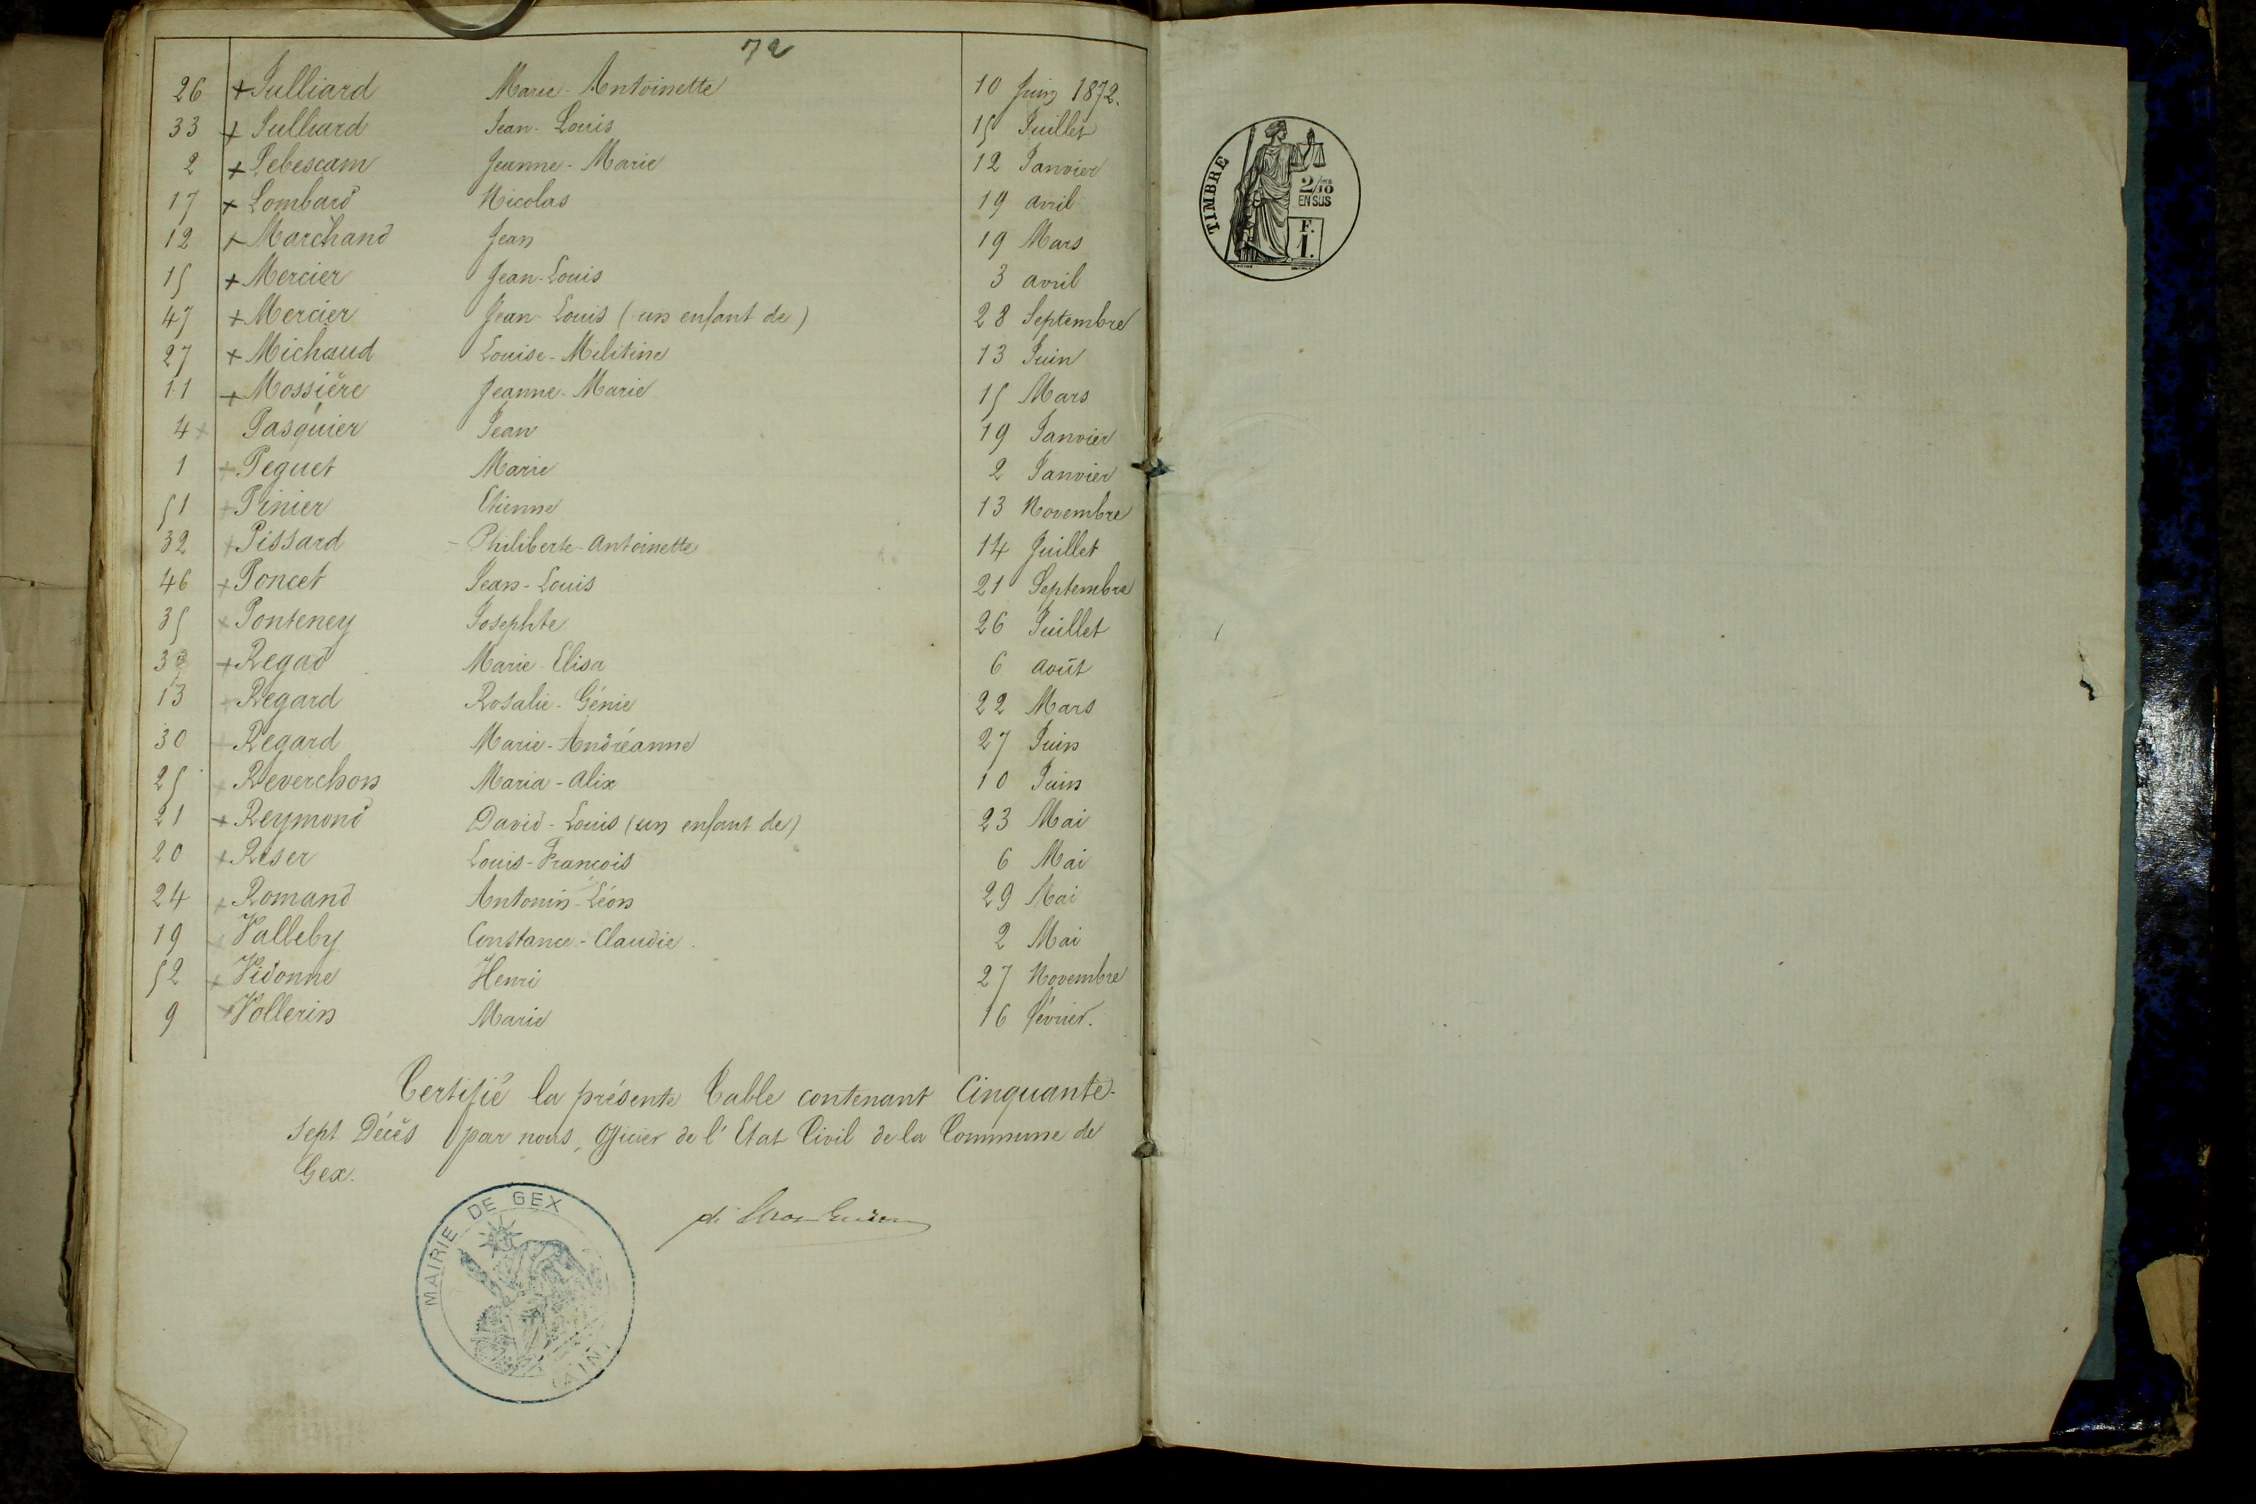 72
26 + Julliard Marie-Antoinette 10 Juin 1872.
33 + Julliard Jean-Louis 15 Juillet
2 + Lebescam Jeanne-Marie 12 Janvier
17 + Lombard Nicolas 19 avril
12 + Marchand Jean 19 Mars
15 + Mercier Jean-Louis 3 avril
47 + Mercier Jean-Louis (un enfant de) 28 Septembre
27 + Michaud Louise-Militine 13 Juin
11 + Mossière Jeanne-Marie 15 Mars
4 + Pasquier Jean 19 Janvier
1 + Peguet Marie 2 Janvier
51 + Pinier Etienne 13 Novembre
32 + Pissard - Philiberte-Antoinette 14 Juillet
46 + Poncet Jean-Louis 21 Septembre
35 + Ponteney Josephte 26 Juillet
+ Regad Marie-Elisa 6 août
13 + Regard Rosalie-Génie 22 Mars
30 + Regard Marie-Andréanne 27 Juin
25 + Reverchon Maria-Alix 10 Juin
21 + Reymond David-Louis (un enfant de) 23 Mai
20 + Riser Louis-François 6 Mai
24 + Romand Antonin-Léon 29 Mai
19 + Valleby Constance-Claudie. 2 Mai
52 + Vidonne Henri 27 Novembre
9 + Vollerin Marie 16 février.
Certifié la présente Table contenant Cinquante-
sept Décès par nous, Officier de l'Etat Civil de la Commune de
Gex.
MAIRIE DE GEX
(AIN)
TIMBRE
2/10
EN SUS
F.
1.